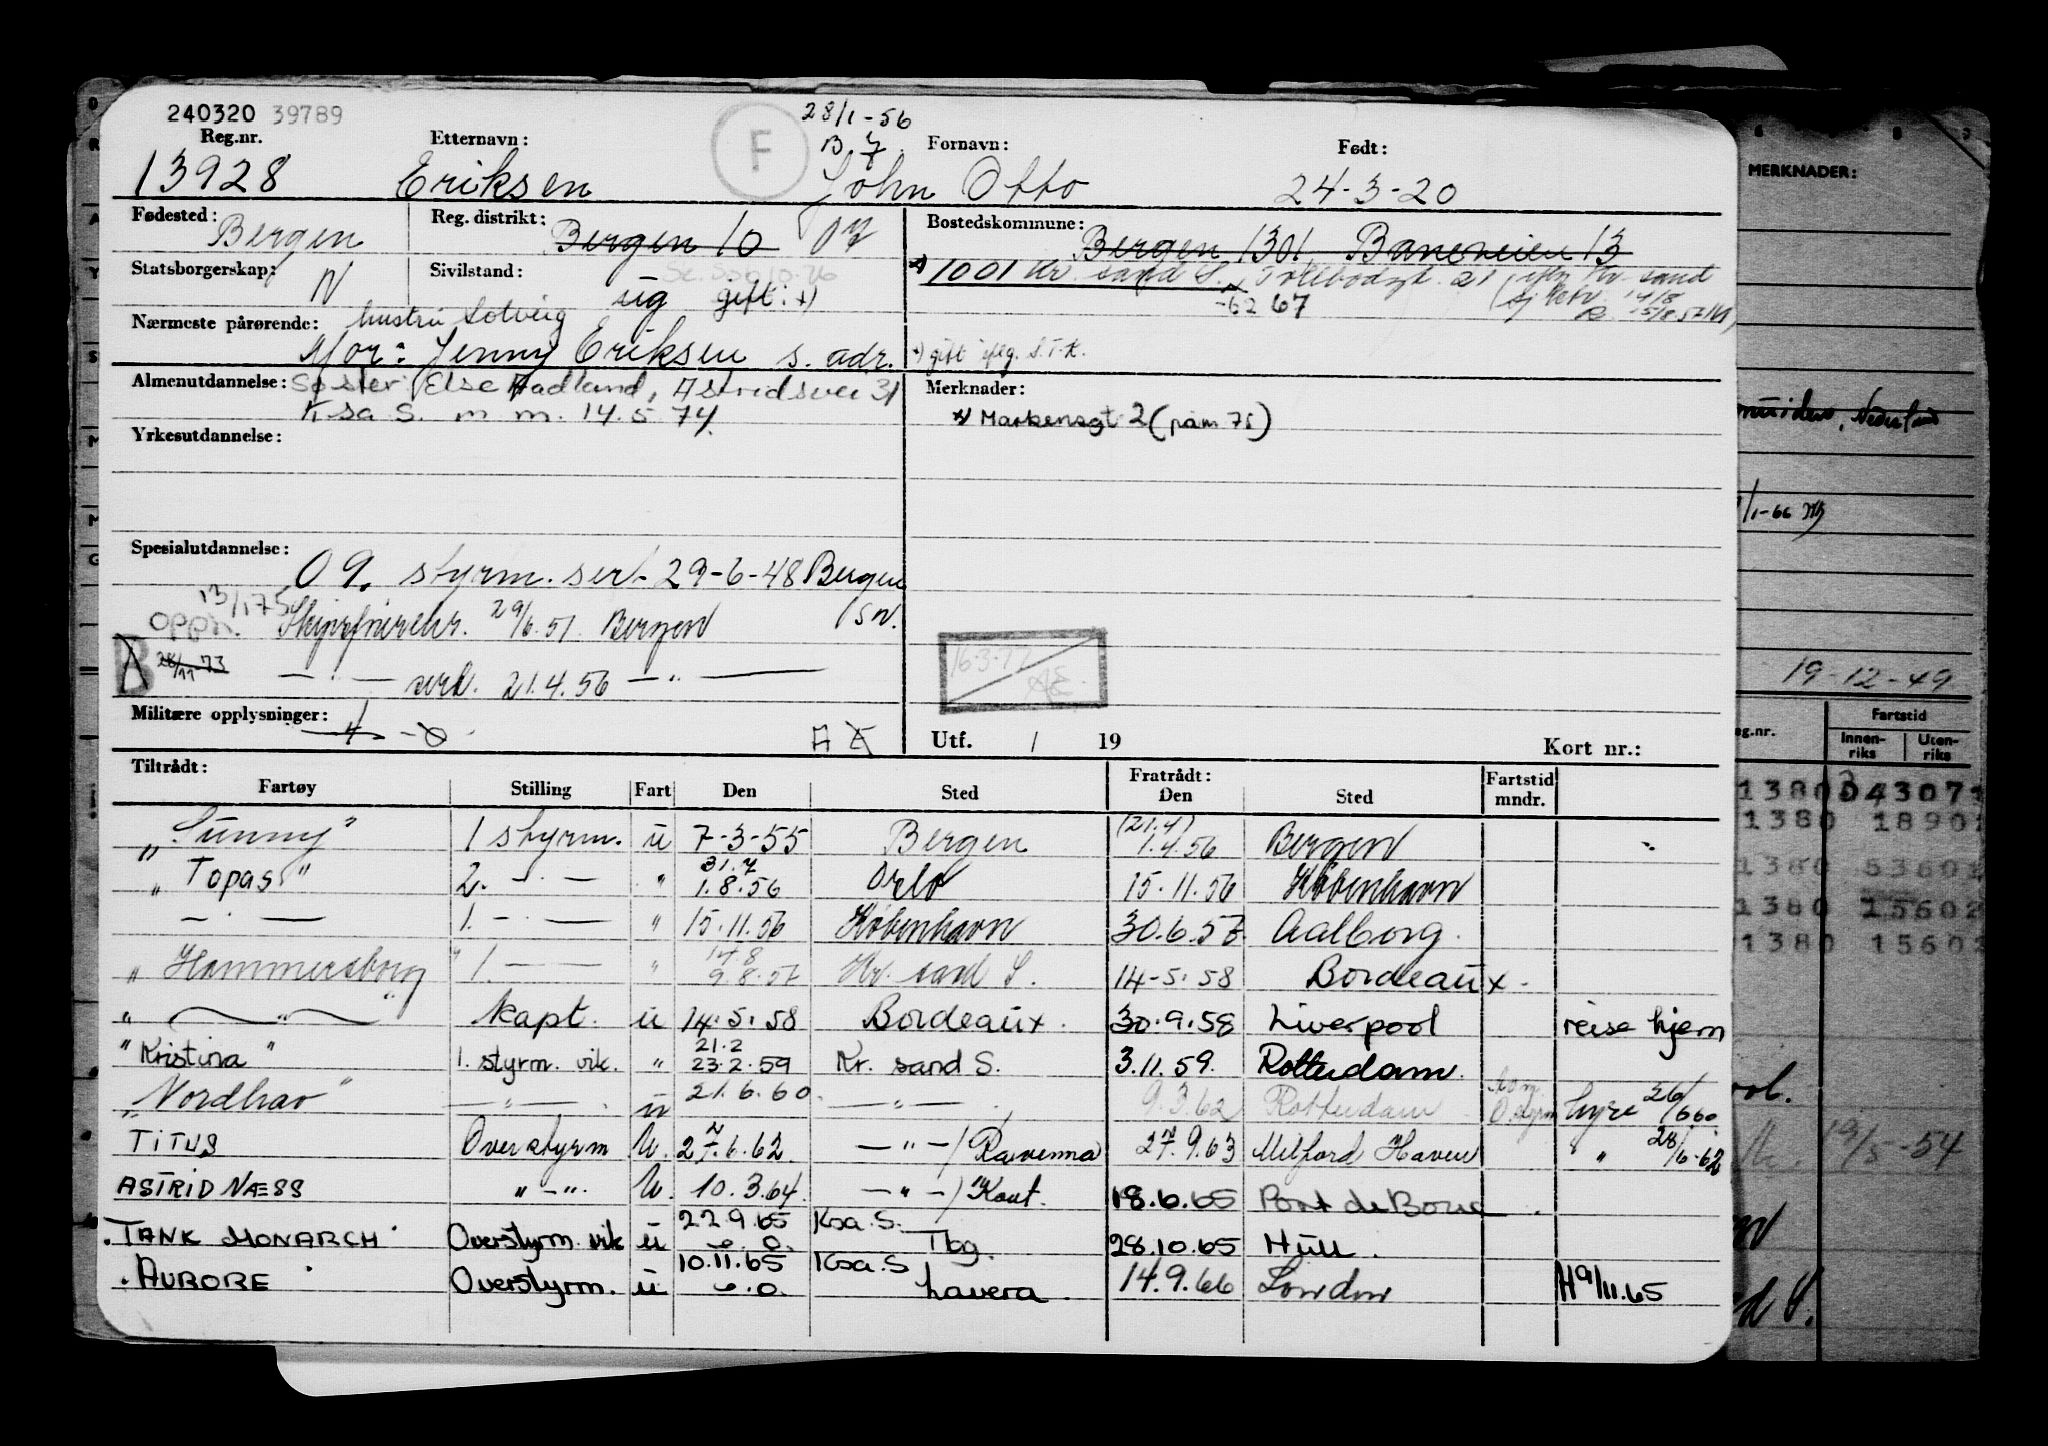 240320 39789
28/1-56
Reg.nr. Etternavn: F B. 7 Fornavn: Født:
13928 Eriksen John Otto 24-3-20
Fødested: Bergen Reg. distrikt: Bergen 10 07 Bostedskommune: Bergen 1301 Baneveien 13
Statsborgerskap: N Sivilstand: ug gift: x)
x) 1001 Kr. sand S. Tollbodgt. 21
-62 67
Nærmeste pårørende: hustru Solveig
Mor: Jenny Eriksen s. adr.
x) gift iflg. S.T.K.
Almenutdannelse: Søster: Else Aadland, Astridsvei 31
Ksa S. m m. 14.5.74.
Merknader:
x) Markensgt 2 (pam 75)
Yrkesutdannelse:
Spesialutdannelse:
09. styrm. sert. 29-6-48 Bergen
13/1 75
oppn. Skipsførerehr. 29/6.51 Bergen SN.
B 28/11-73
— " — serk. 21.4.56 — " —
16.3.77
AE
Militære opplysninger:
Utf. / 19 Kort nr.:
Tiltrådt: Fratrådt: Fartstid
Fartøy Stilling Fart Den Sted Den Sted mndr.
"Sunny" 1 styrm. u 7-3-55 Bergen (21.4) 1.4.56 Bergen
"Topas" 2. — " — " 31.7 1.8.56 Oslo 15.11.56 København
— " — 1. — " — " 15.11.56 København 30.6.57 Aalborg.
"Hammersborg" 1. — " — " 14.8 9.8.57 Kr. sand S. 14-5.58 Bordeaux.
" — " — " kapt. u 14.5.58 Bordeaux. 30.9.58 Liverpool reise hjem
"Kristina" 1. styrm. vik. " 21.2 23.2.59 Kr. sand S. 3.11.59. Rotterdam.
"Nordhav" — " — u 21.6.60. — " — 9.3.62 Rotterdam som O.styrm hyre 26/6 60
TITUS Overstyrm U. 27.6.62. — " — / Ravenna 27.9.63 Milford Haven " 28/6.62
ASTRID NÆSS " — ". U. 10.3.64. — " — / Kout. 18.6.65 Port de Bouc
"TANK MONARCH" Overstyrm. vik u 22.9.65 Ksa. S. Tbg. 28.10.65 Hull.
"AURORE" Overstyrm. u 10.11.65 Ksa. S Lavera. 14.9.66 London H 9/11.65
MERKNADER:
Nederland
/1-66
19-12-49
Fartstid
Innenriks Utenriks
1380 043071
1380 18901
1380 53601
1380 15602
1380 15602
19/5-54